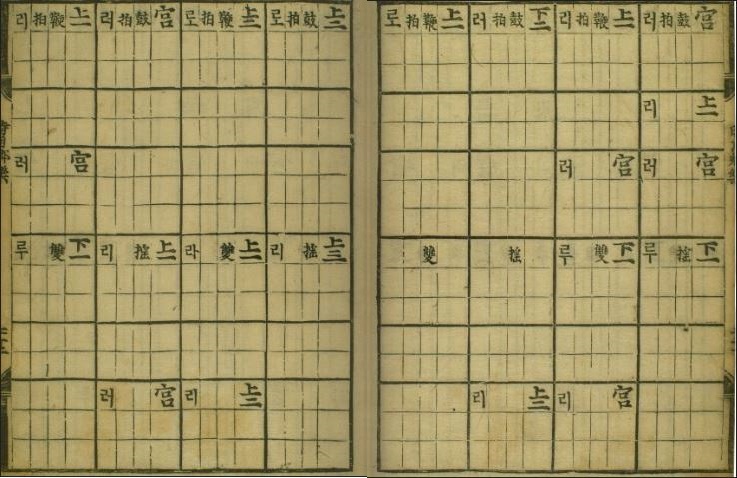 宮鼓拍리
上一리
宮러
下一搖루
上一鞭拍리
宮러
下一雙루
宮리
下二鼓拍러
搖
上二리
上一鞭拍로
雙
上二鼓拍로
上三搖리
上三鞭拍로
上二雙라
上二리
宮鼓拍리
上一搖리
宮러
上一鞭拍리
宮러
下一雙루